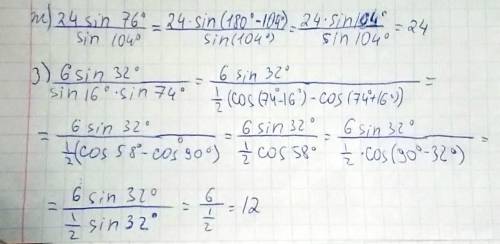 ж) 24 sin 76° / sin 104° = 24·sin(180°-104°) / sin(104°) = 24·sin104° / sin 104° = 24
з) 6 sin 32° / sin 16°·sin 74° = 6 sin 32° / ½(cos(74°-16°)-cos(74°+16°)) =
= 6 sin 32° / ½(cos 58°-cos 90°) = 6 sin 32° / ½ cos 58° = 6 sin 32° / ½·cos(90°-32°) =
= 6 sin 32° / ½ sin 32° = 6 / ½ = 12